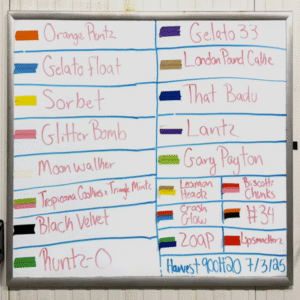 Orange Runtz
Gelato Float
Sorbet
Glitter Bomb
Moonwalker
Black Velvet
Runtz-O
Gelato 33
London Pound Cake
That Badu
Lantz
Gary Payton
Leamon Headz
Biscotti Chunks
Crash Glow
#34
Zoap
Lipsmackerz
Harvest 900H20 7/3/25